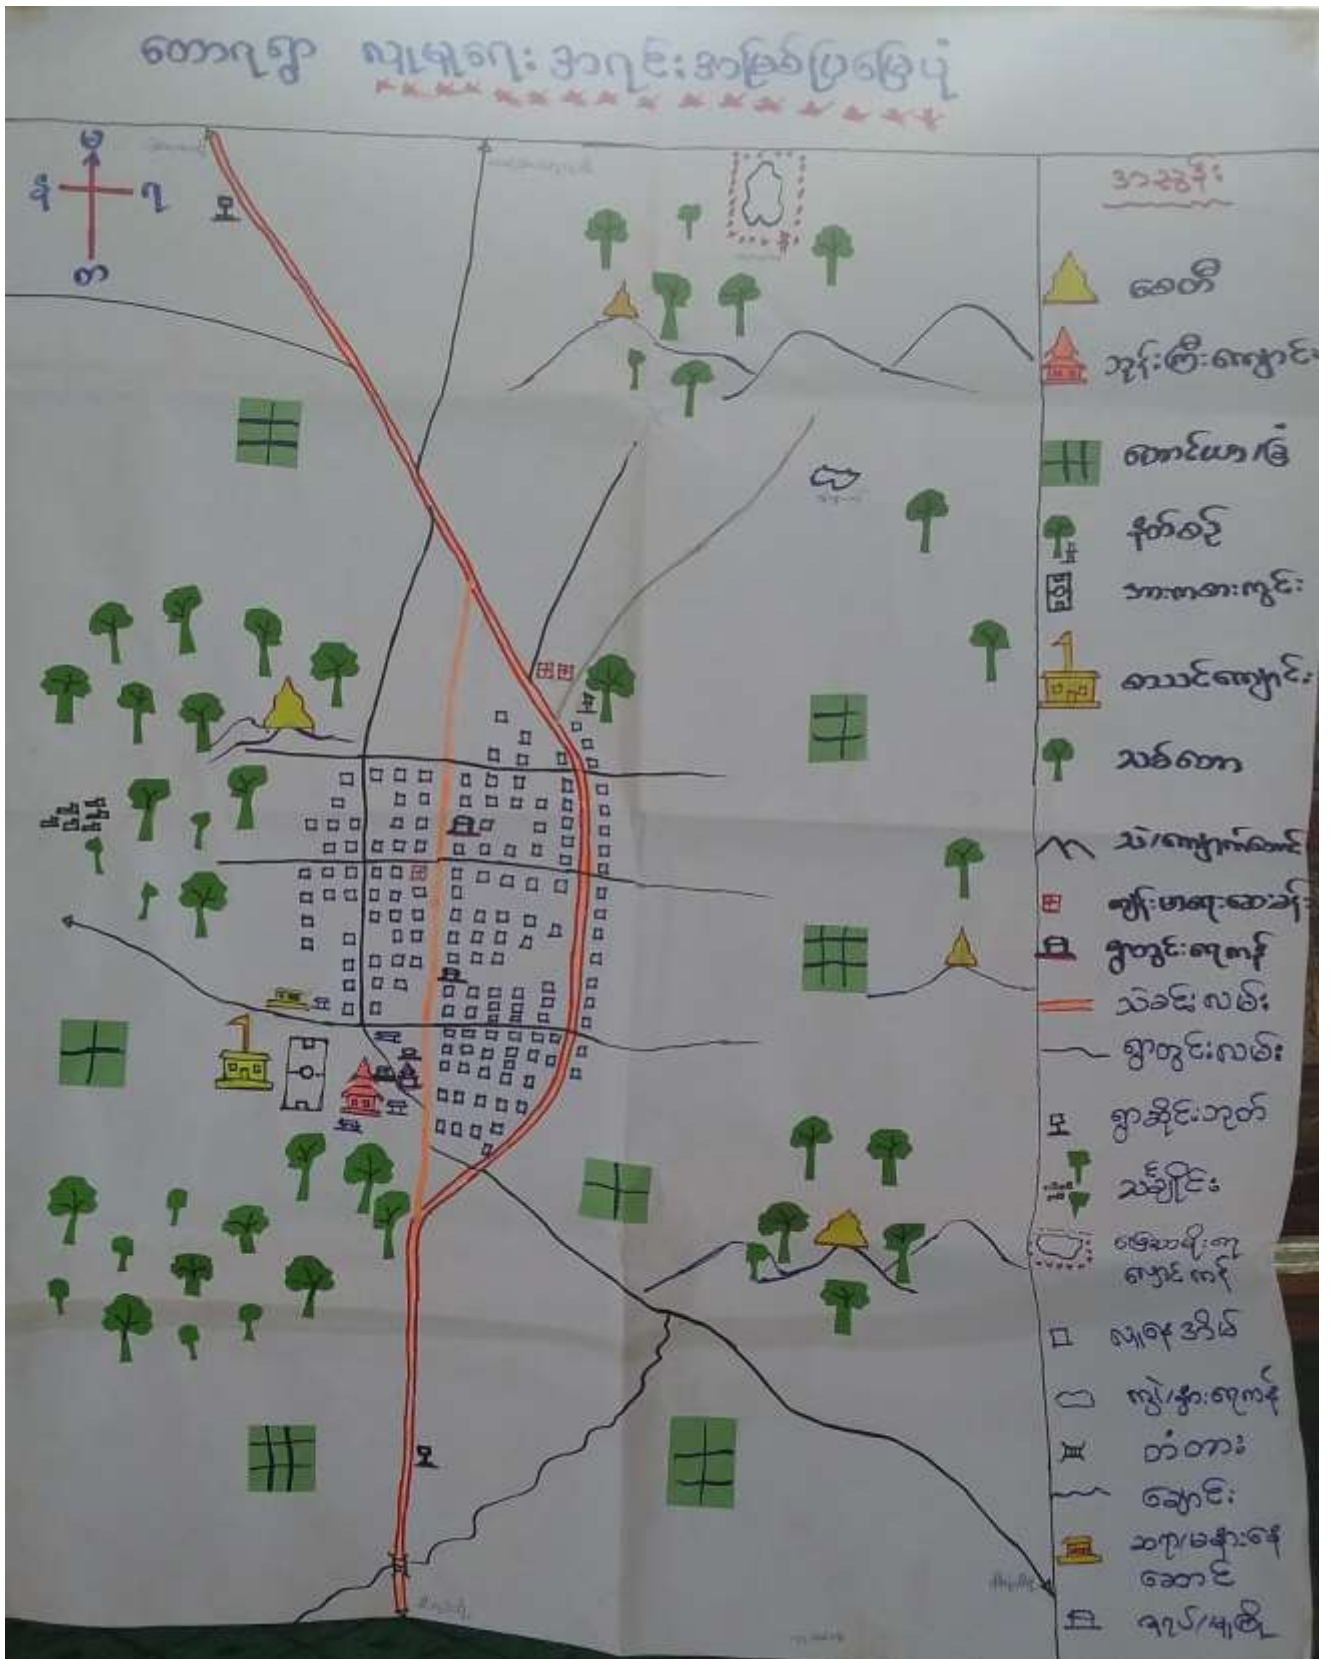 တောရွာ လူမှုရေး အရင်းအမြစ်ပြမြေပုံ
မ
နံ
ရ
တ
အညွှန်း
စေတီ
ဘုန်းကြီးကျောင်း
တောင်ယာ/ခြံ
နတ်စင်
အားကစားကွင်း
စာသင်ကျောင်း
သစ်တော
သဲ/ကျောက်တောင်
ကျန်းမာရေးဆေးခန်း
ရွာတွင်းရေကန်
သဲခင်းလမ်း
ရွာတွင်းလမ်း
ရွာဆိုင်းဘုတ်
သင်္ချိုင်း
လှောင်ကန်
လူနေအိမ်
ကျွဲ/နွားရေကန်
တံတား
ချောင်း
ဆရာ/မများနေ
ဆောင်
ဇရပ်/